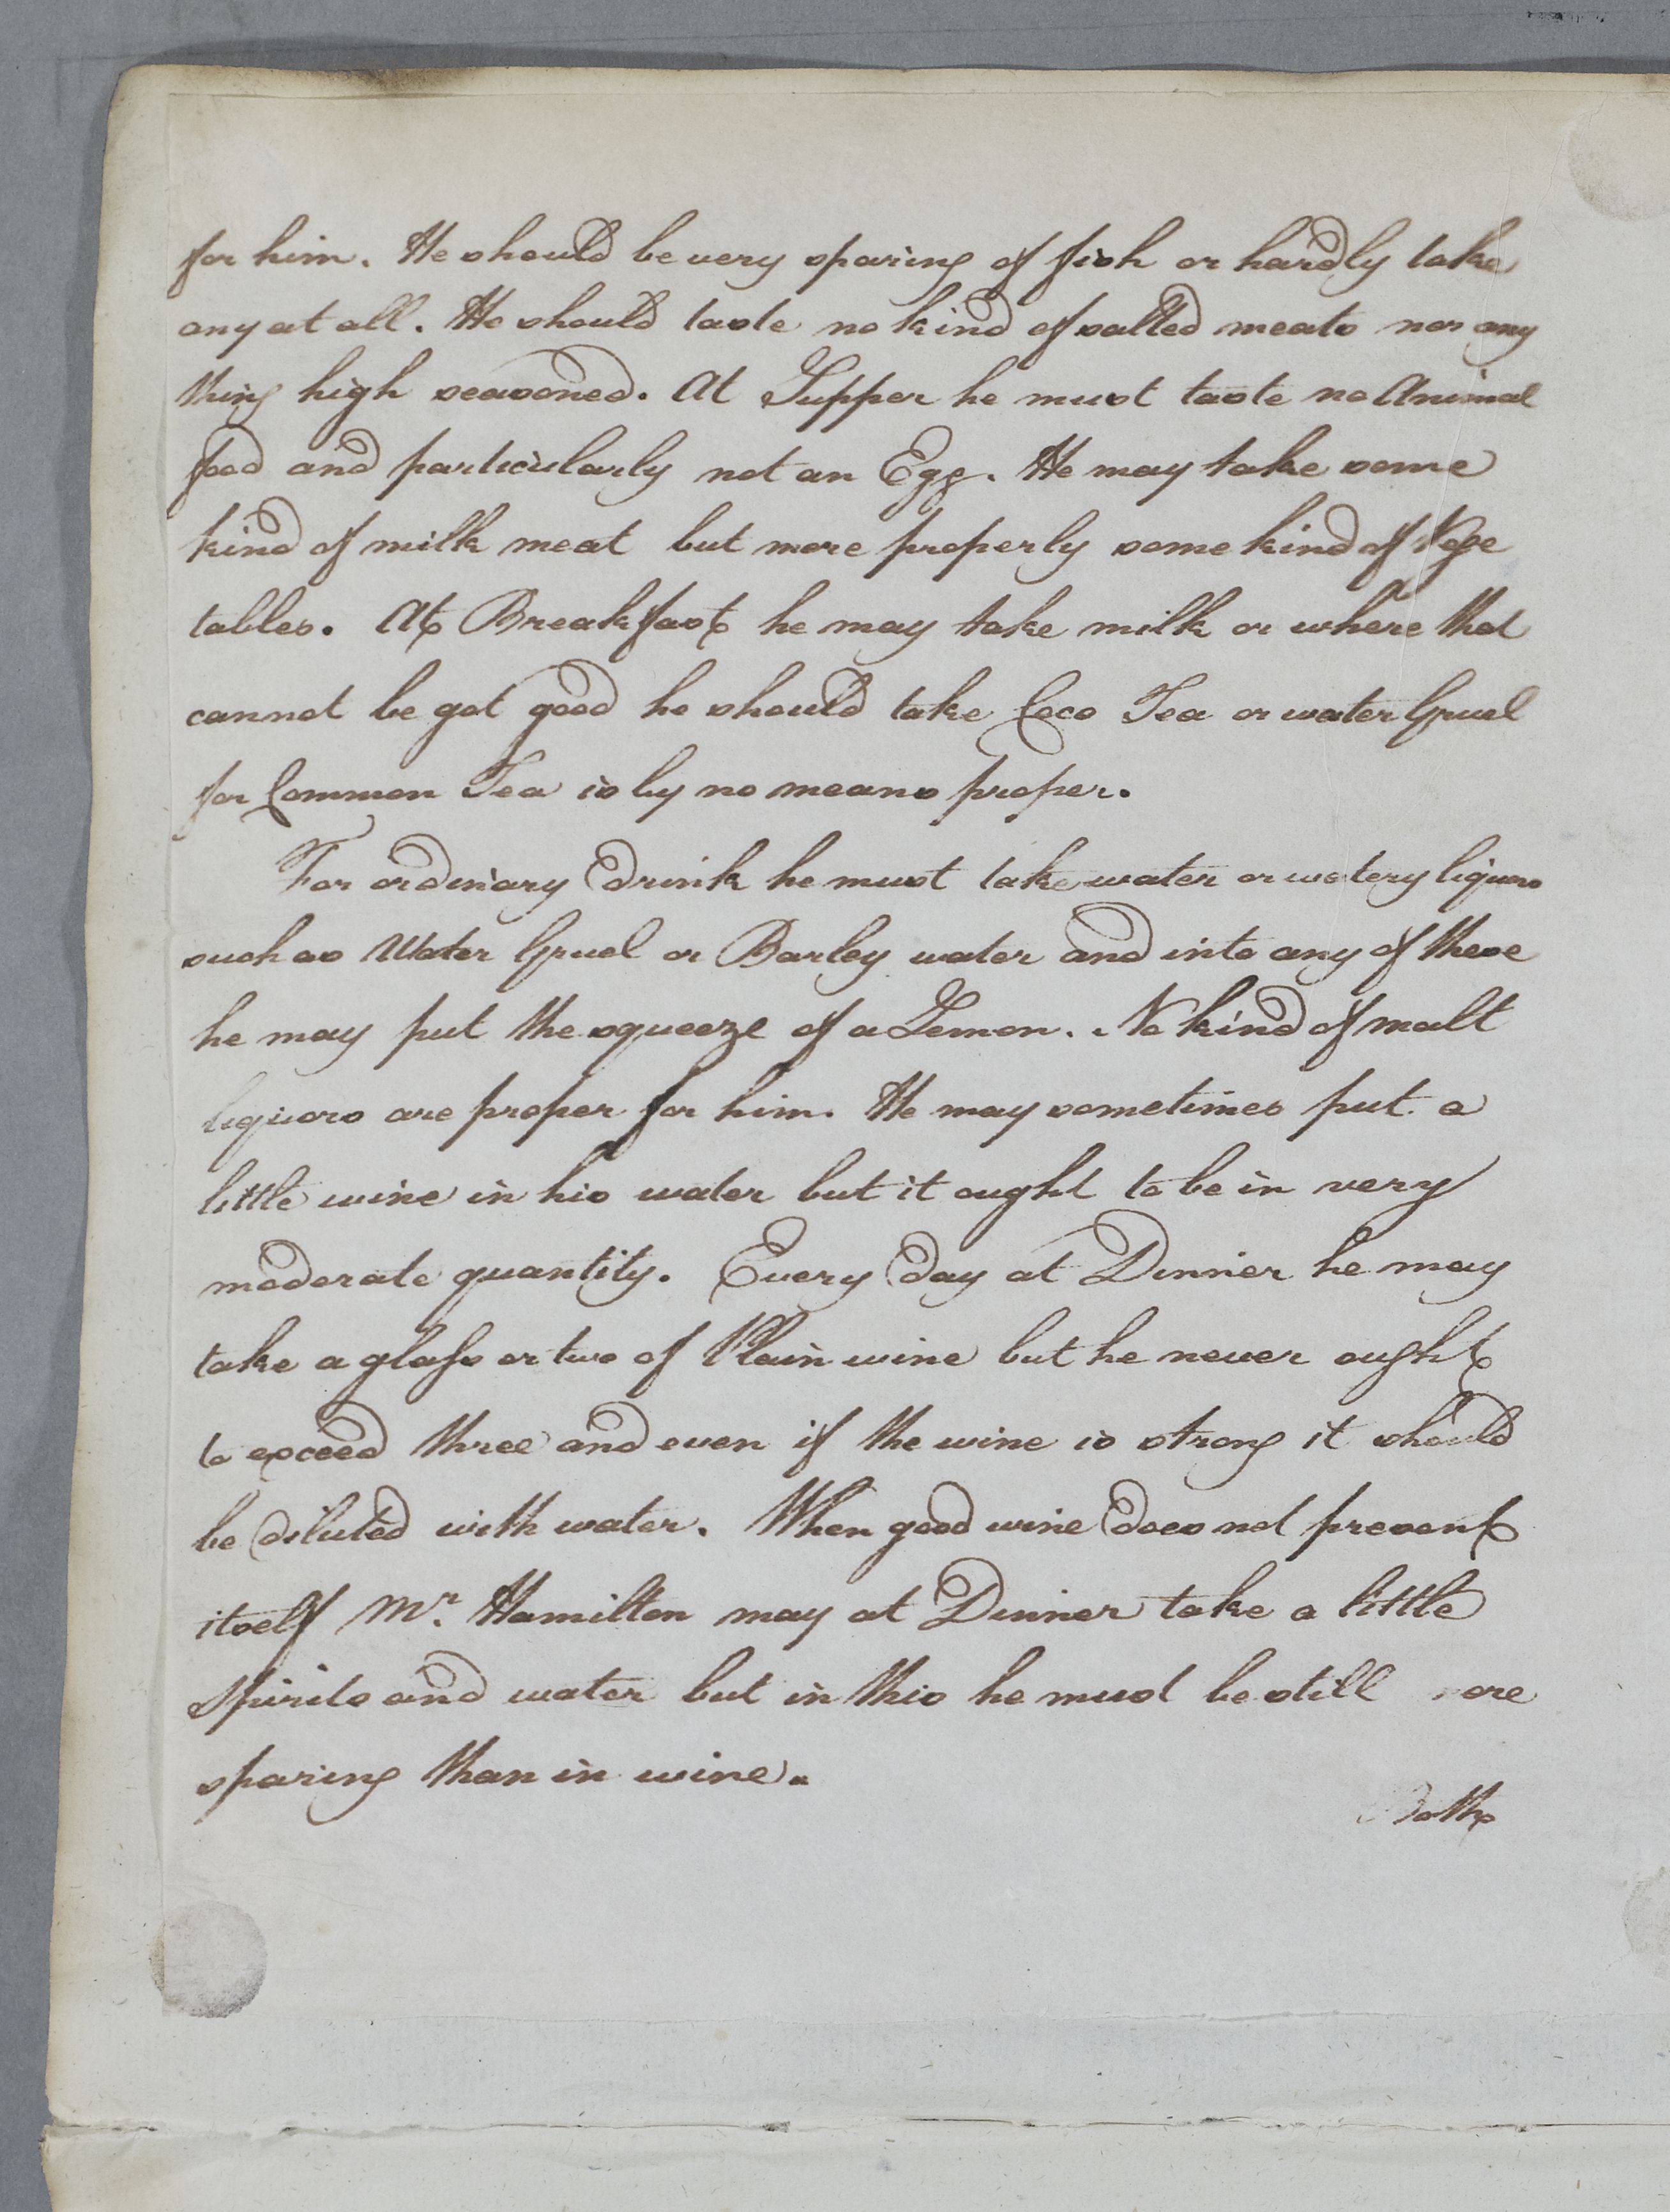 for him. He should be very sparing of fish or hardly take
any at all. He should taste no kind of salted meats nor any
thing high seasoned. At Supper he must taste no Animal
food and particularly not an Egg. He may take some
kind of milk meat but more properly some kind of Vege
tables. At Breakfast he may take milk or where that
cannot be got good he should take Coco Tea or water Gruel
for Common Tea is by no means proper.
For ordinary drink he must take water or watery liquors
such as Water Gruel or Barley water and into any of these
he may put the squeeze of a Lemon. No kind of malt
liquors are proper for him. He may sometimes put a
little wine in his water but it ought to be in very
moderate quantity. Every day at Dinner he may
take a glass or two of Plain wine but he never ought
to exceed three and even if the wine is strong it should
be diluted with water. When good wine does not present
itself Mr. Hamilton may at Dinner take a little
Spirits and water but in this he must be still more
sparing than in wine.
Both